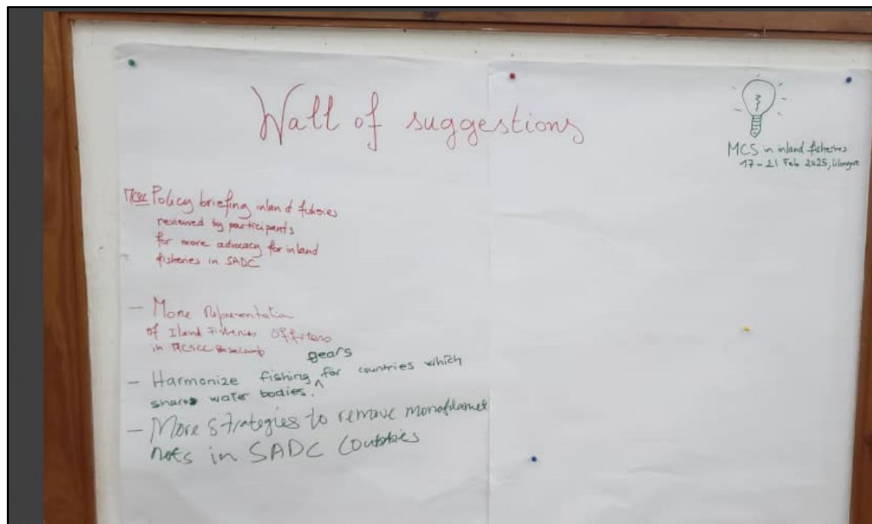 Wall of suggestions
MCS in inland fisheries
17-21 Feb 2025, Lilongwe
Policy briefing inland fisheries
reviewed by participants
for more advocacy for inland
fisheries in SADC
- More Representation
of Iland Fisheries
in
gears
- Harmonize fishing ^ for countries which
share water bodies.
- More strategies to remove monofilament
nets in SADC Countries